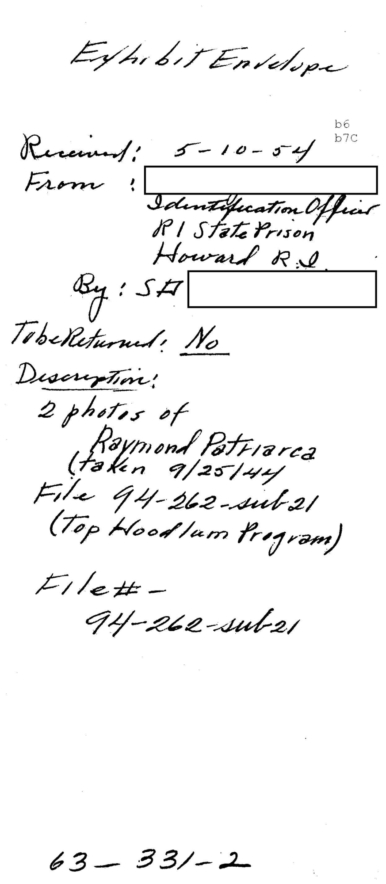 Exhibit Envelope
b6
b7C
Received: 5-10-54
From :
Identification Officer
RI State Prison
Howard R.I.
By: SA
To be Returned: No
Description:
2 photos of
Raymond Patriarca
(taken 9/25/44
File 94-262-sub 21
(Top Hoodlum Program)
File # -
94-262-sub 21
63-331-2